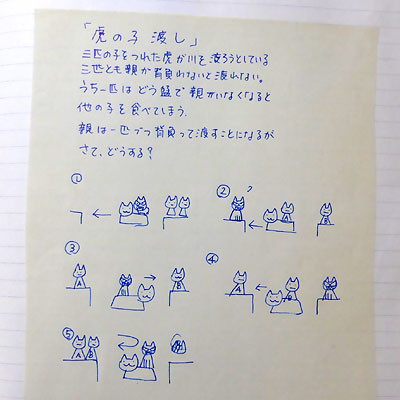 「虎の子渡し」
三匹の子をつれた虎が川を渡ろうとしている
三匹とも親が背負わないと渡れない。
うち一匹はどう猛で親がいなくなると
他の子を食べてしまう。
親は一匹づつ背負って渡すことになるが
さて、どうする?
①
②
A
B
③
A
B
④
A
⑤
A
B